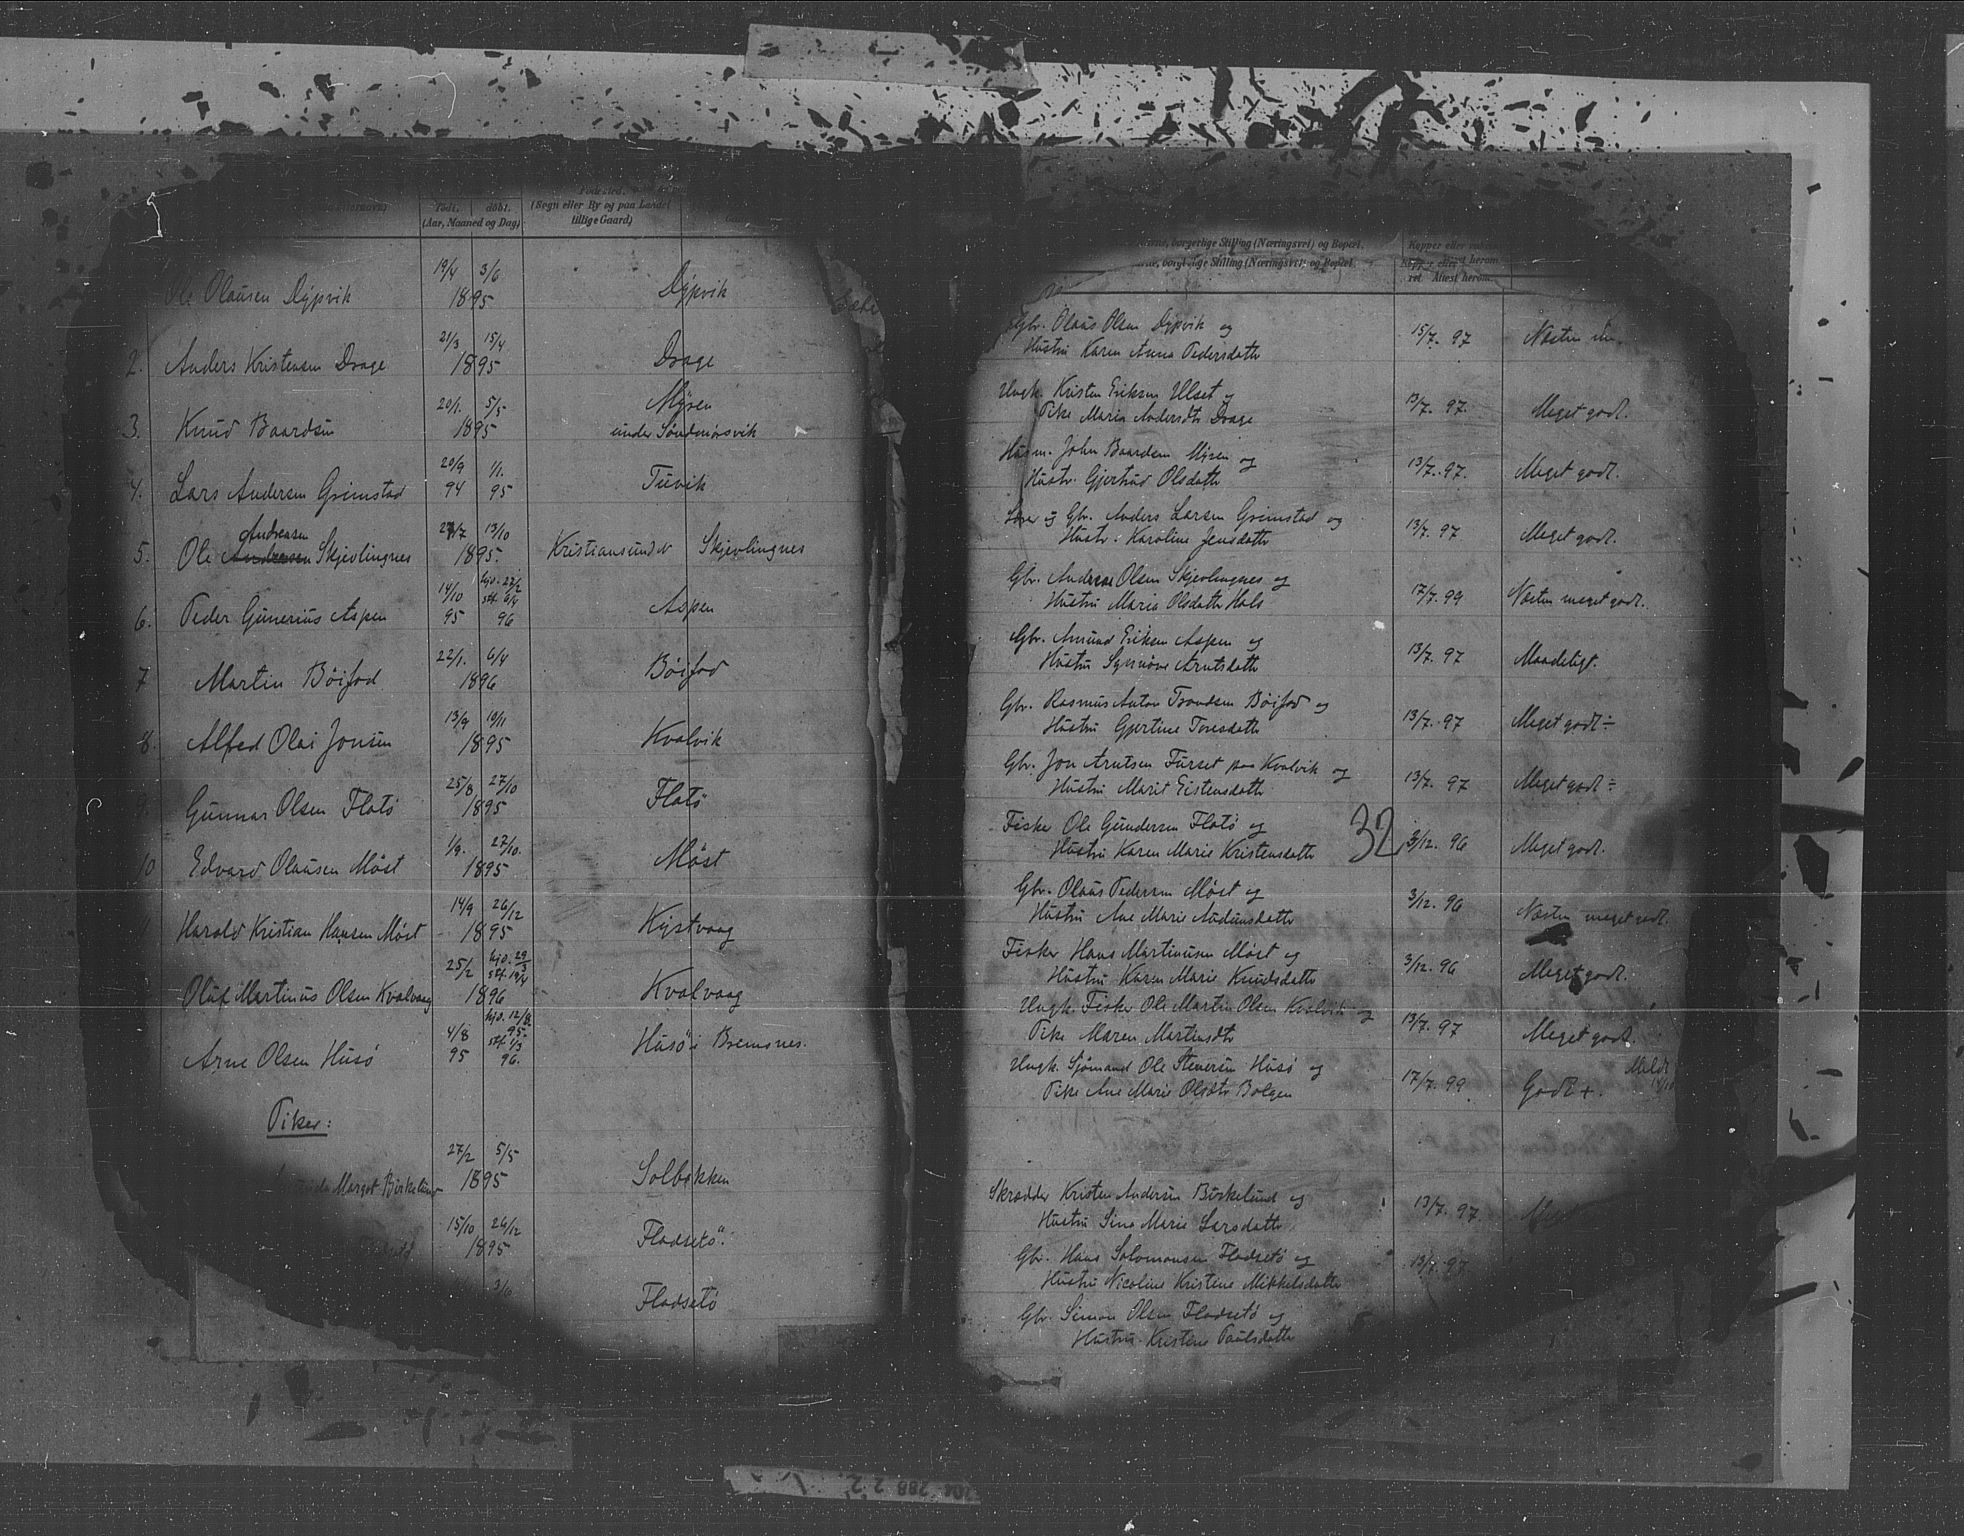 Fødested.
Født. døbt. (Segn eller By og paa Landet
(Aar, Maaned og Dag) tillige Gaard)
Ole Olausen Dypvik 19/4 3/6 1895 Dypvik
2. Anders Kristensen Drage 21/3 15/4 1895 Drage
3. Knud Baardsen 20/1. 5/5 1895 Myren
under Sandnørsvik
4. Lars Andersen Grimstad 20/9 94 1/1. 95 Tuvik
Andreasen
5. Ole Andersen Skjevlingnes 27/7 13/10 1895. Kristiansund N Skjevlingnes
6. Peder Gunerius Aspen 14/10 95 hjd. 22/2 stf. 6/4 96 Aspen
7 Martin Böifod 22/1. 6/4 1896 Böifod
8. Alfred Olai Jonsen 13/9 10/11 1895 Kvalvik
9. Gunnar Olsen Flatö 25/8 27/10 1895 Flatö
10 Edvard Olausen Möst 1/9. 27/10. 1895 Möst
11 Harald Kristian Hansen Möst 14/9 26/12 1895 Kystvaag
Oluf Martinus Olsen Kvalvaag 25/2 hjd. 29/3 stf. 19/4 1896 Kvalvaag
Arne Olsen Husö 4/8 95 hjd. 12/8. 95. stf. 1/3 96. Husö i Bremsnes.
Piker:
Margot Birkelund 27/2 5/5 1895 Solbakken
15/10 26/12 1895 Fladsetö
3/6 Fladsetö
borgerlige Stilling (Næringsvei) og Bopæl.
Kopper eller
borgerlige Stilling (Næringsvei) og Bopæl.
Attest herom
Gbr. Olaus Olsen Dypvik og 15/7. 97 Næsten
Hustru Karen Anna Pedersdatter
Ungk. Kristen Eriksen Ulset og 13/7. 97. Meget godt.
Pike Maria Andersdtr Drage
Husm. John Baardsen Myren og 13/7. 97. Meget godt.
Hustr. Gjertrud Olsdatter
Gbr. Anders Larsen Grimstad og 13/7. 97 Meget godt.
Hustr. Karoline Jensdatter
Gbr. Andreas Olsen Skjevlingnes og 17/7. 99 Næsten meget godt.
Hustru Marie Olsdatter Hals
Gbr. Amund Eriksen Aspen og 13/7. 97 Maadeligt.
Hustru Synnöve Arntsdatter
Gbr. Rasmus Anton Trondsen Böifod og 13/7. 97 Meget godt ÷
Hustru Gjertine Toresdatter
Gbr. Jon Arntsen Furset paa Kvalvik og 13/7. 97 Meget godt ÷
Hustru Marit Eistensdatter
Fisker Ole Gundersen Flatö og 32 3/12. 96 Meget godt.
Hustru Karen Marie Kristensdatter
Gbr. Olaus Pedersen Möst og 3/12. 96 Næsten meget godt.
Hustru Ane Marie Audunsdatter
Fisker Hans Martinusen Möst og 3/12. 96 Meget godt.
Hustru Karen Marie Knudsdatter
Ungk. Fisker Ole Martin Olsen Kvalvik og 13/7. 97 Meget godt.
Pike Maren Martinsdtr
Ungk. Sjömand Ole Stenersen Husö og 17/7. 99 Godt +.
Pike Ane Marie Olsdtr Bolgen
Skrædder Kristen Andersen Birkelund og 13/7. 97.
Hustru Sina Marie Larsdatter
Gbr. Hans Salomonsen Fladsetö og 13/7. 97
Hustru Nicoline Kristine Mikkelsdatter
Gbr. Simon Olsen Fladsetö og
Hustru Kristine Paulsdatter
288 2 2